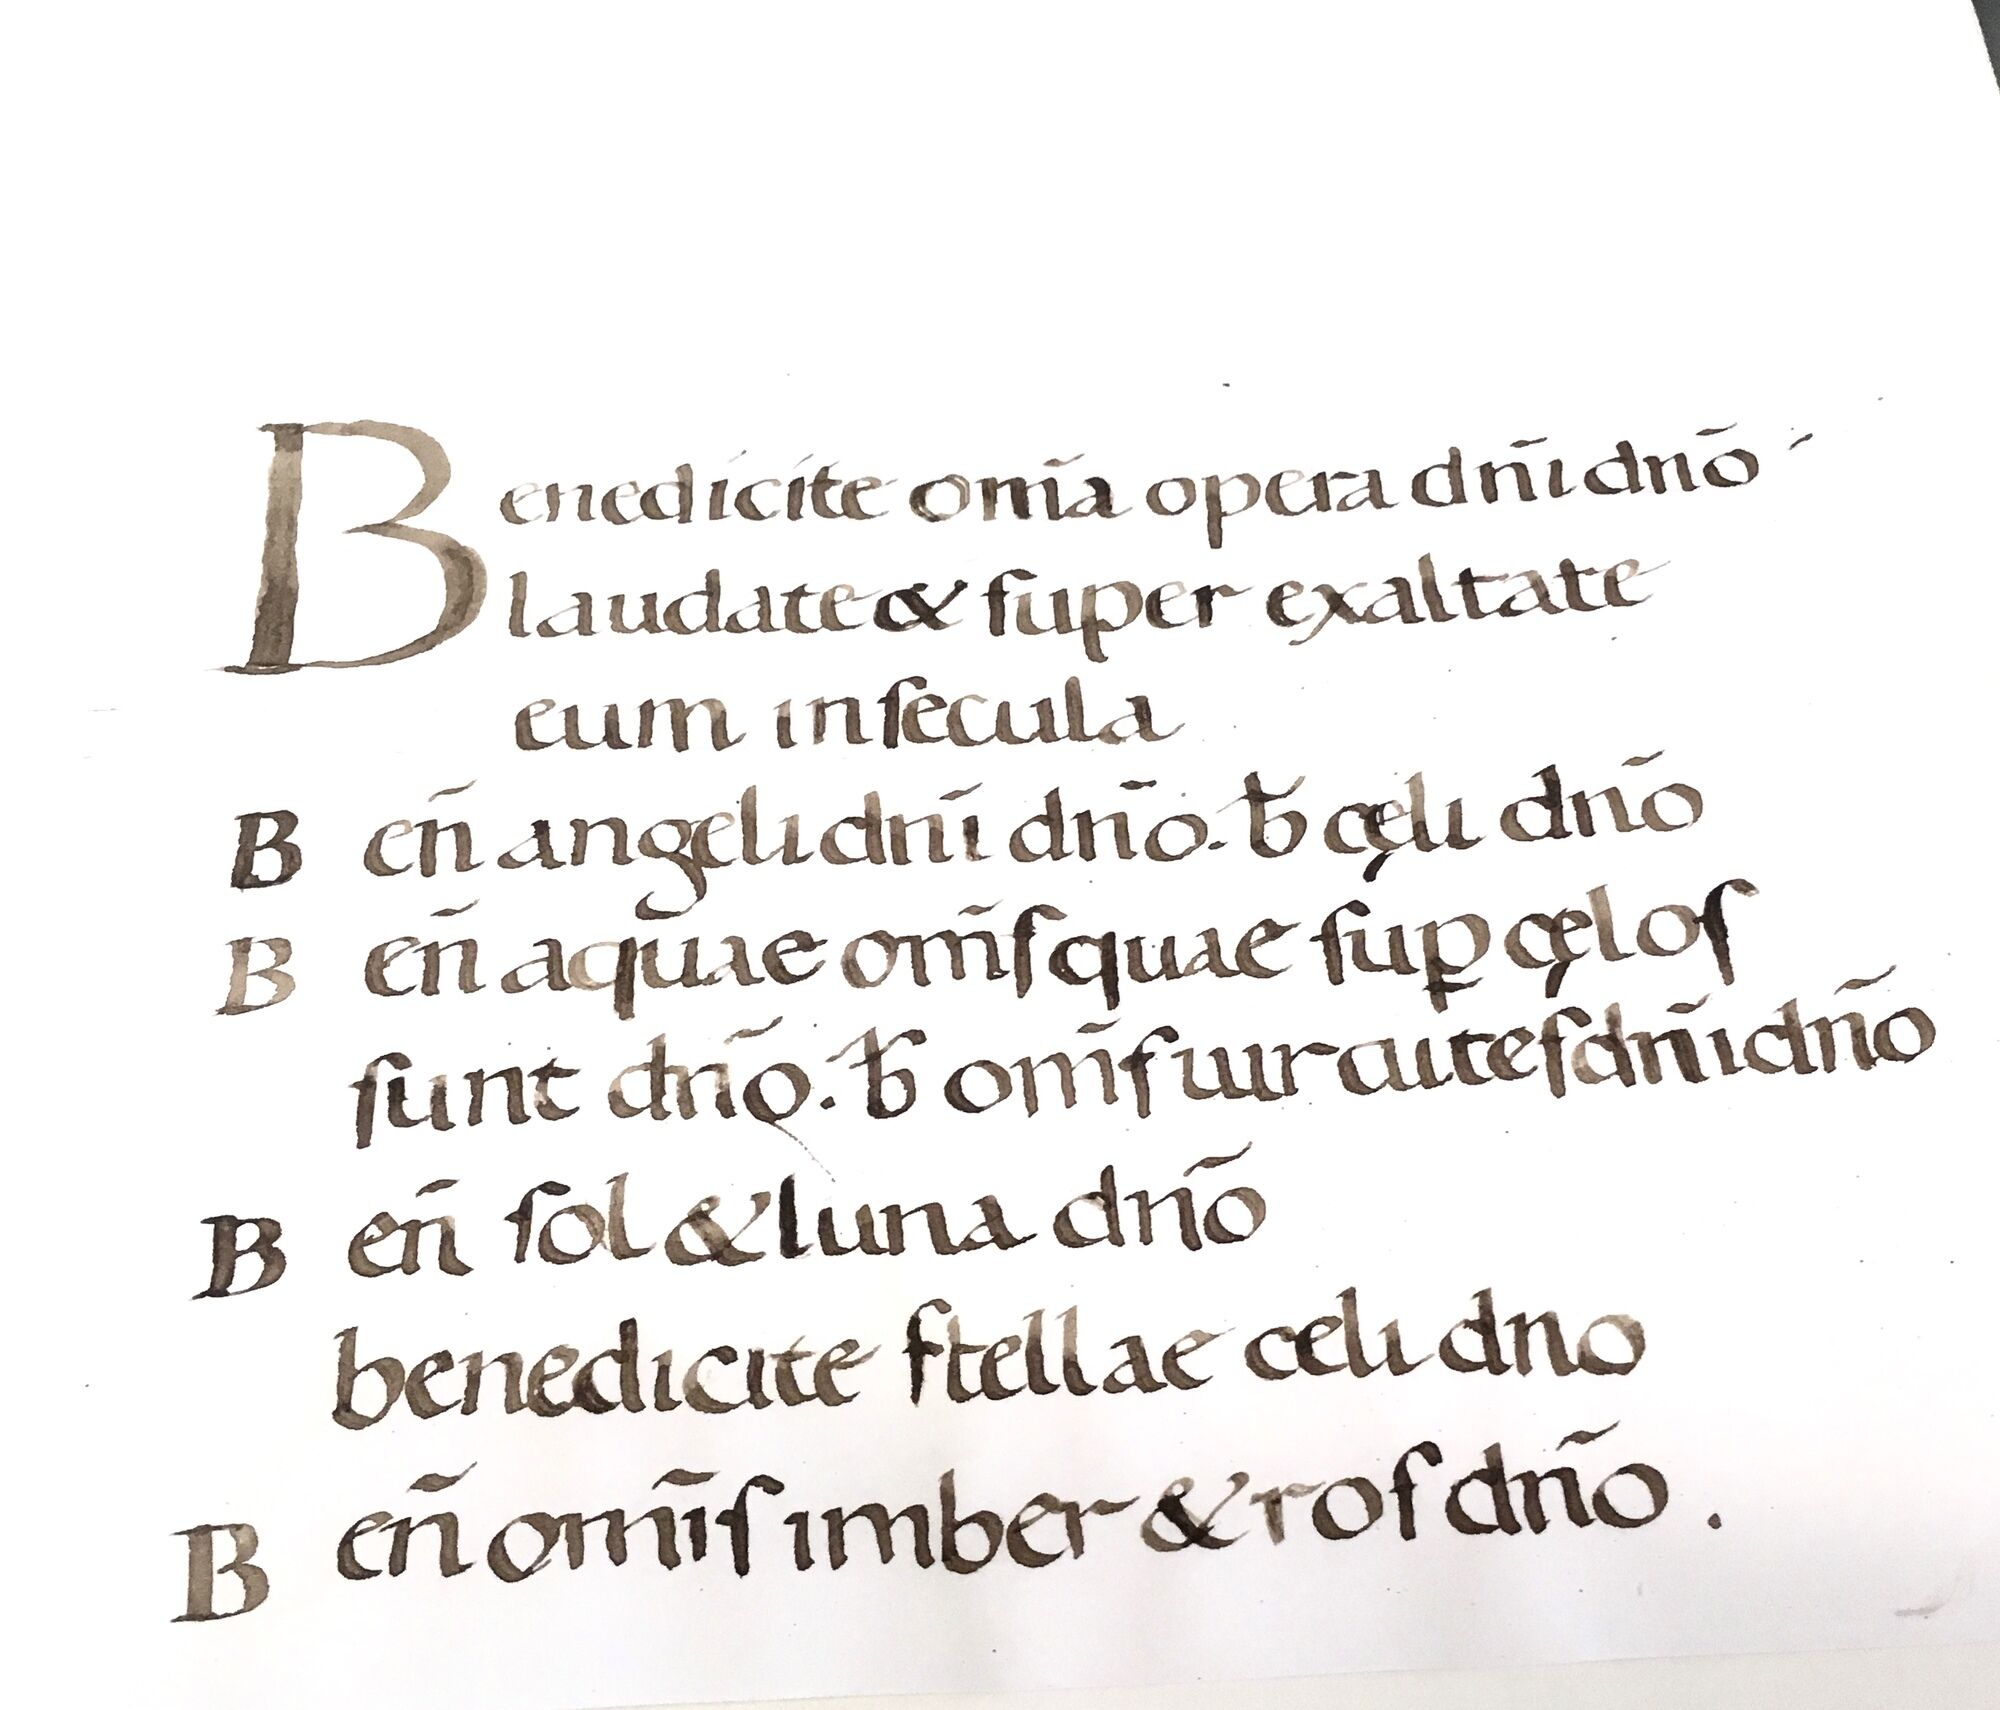 Benedicite om̄a opera dn̄i dn̄o
laudate & ſuper exaltate
eum in ſecula
B en̄ angeli dn̄i dn̄o. ƀ cęli dn̄o
B en̄ aquae om̄ſ quae ſuꝑ cęloſ
ſunt dn̄o. ƀ om̄ſ uirtuteſ dn̄i dn̄o
B en̄ ſol & luna dn̄o
benedicite ſtellae celi dno
B en̄ om̄iſ imber & roſ dn̄o.